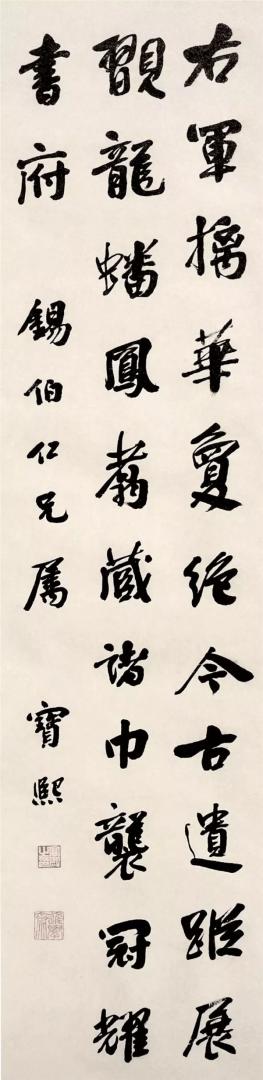 右軍摛華夐絕今古遺蹤展
翫龍蟠鳳翥藏諸巾襲冠耀
書府 錫伯仁兄屬 寶熙